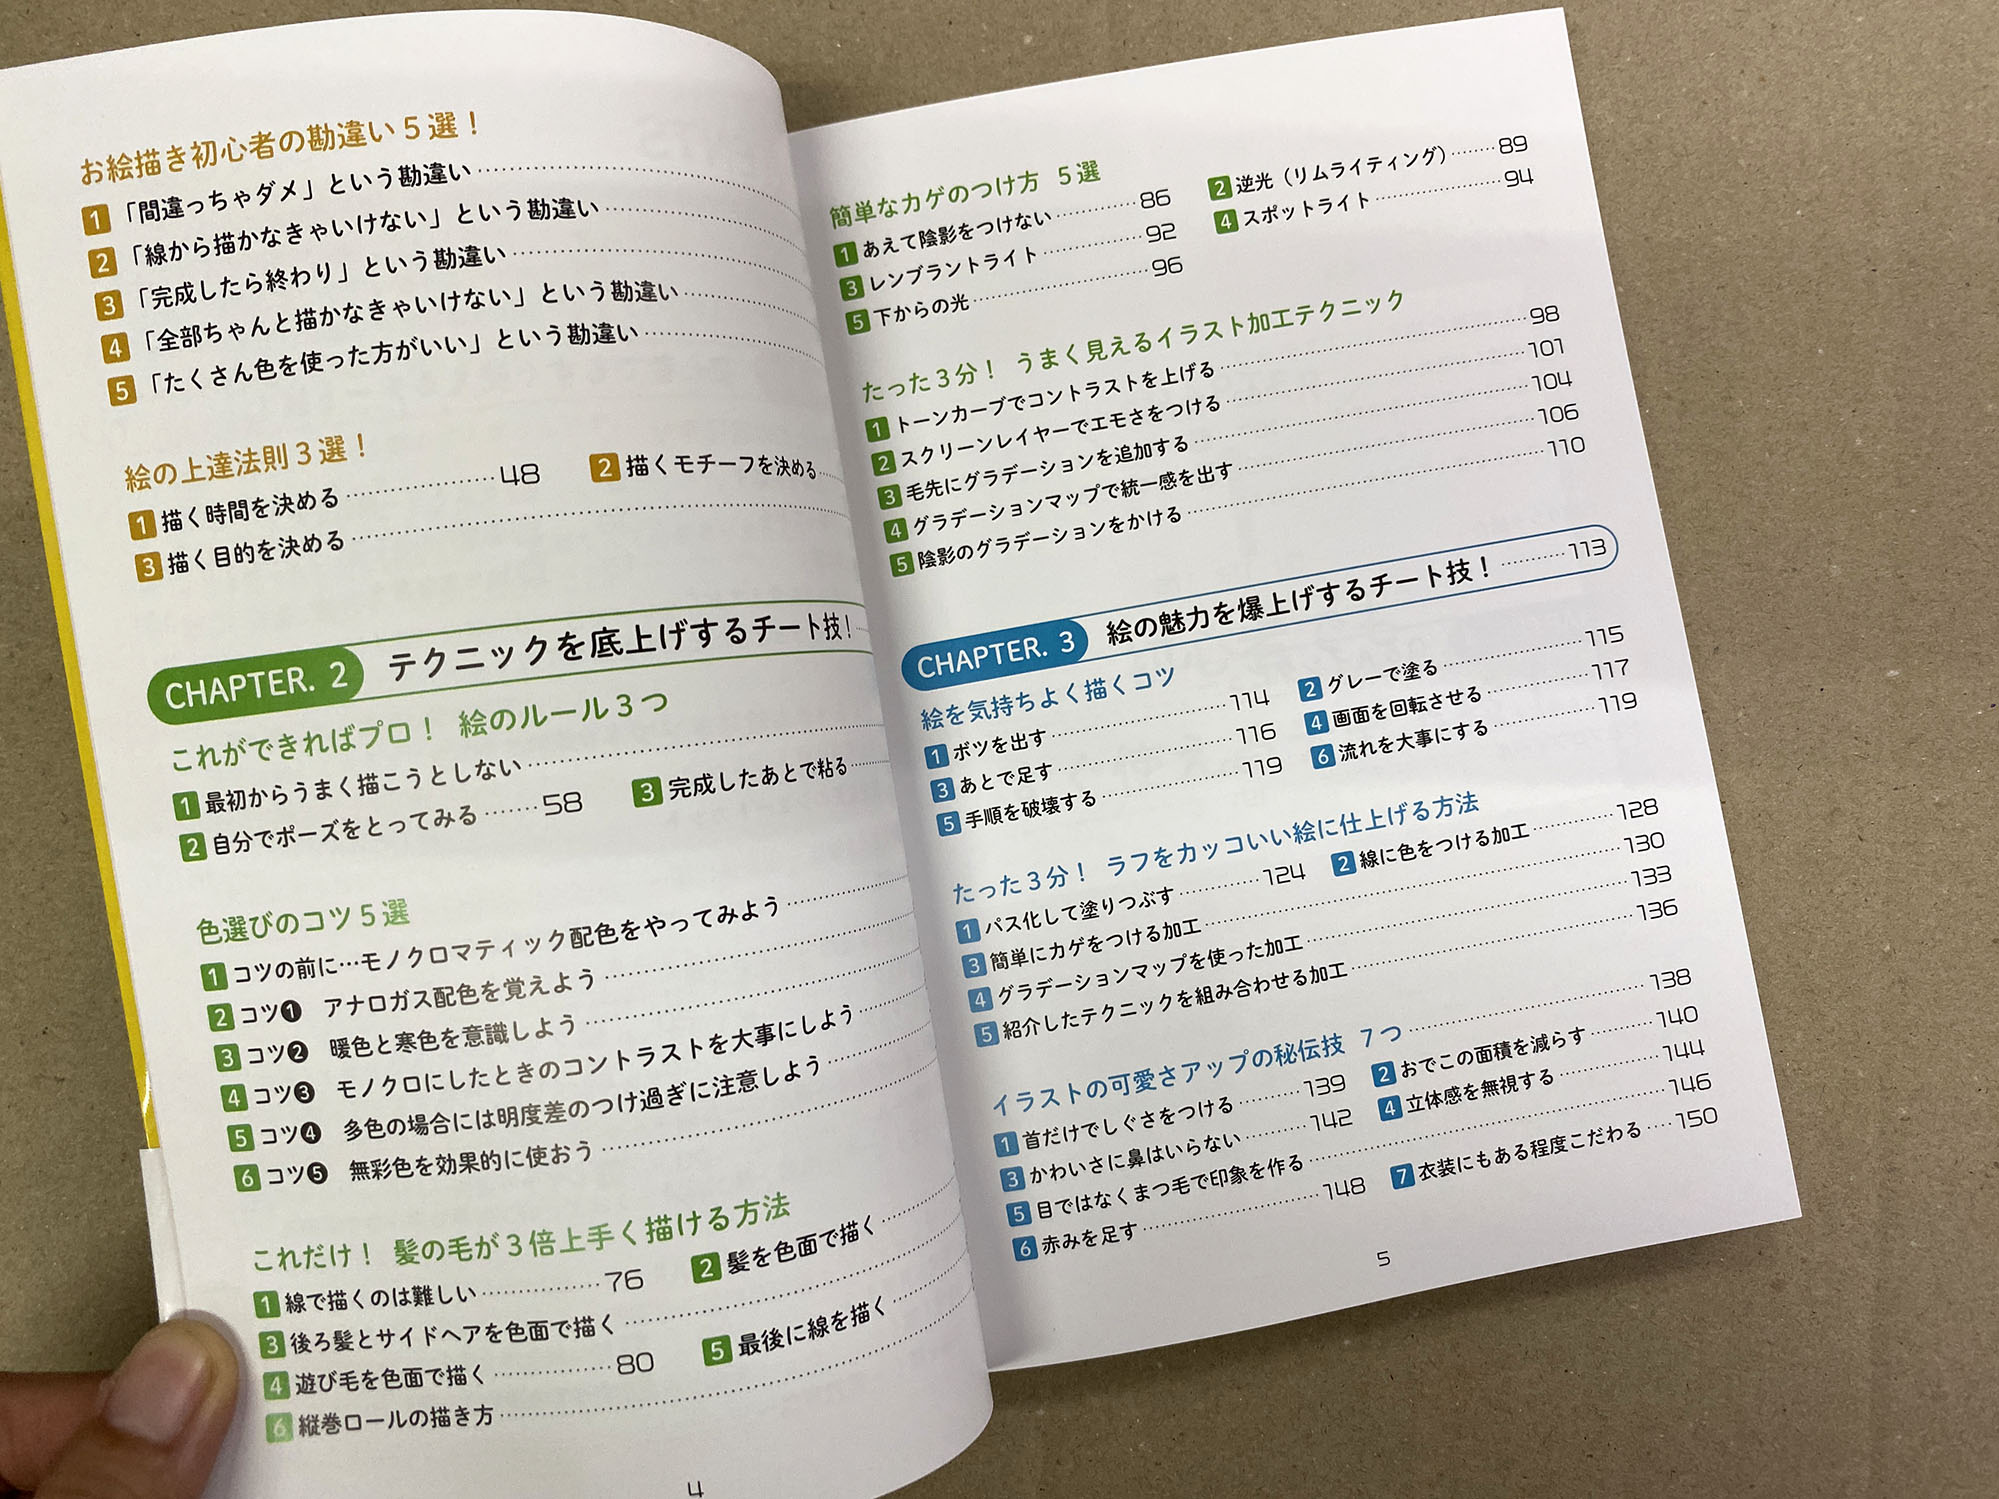 お絵描き初心者の勘違い5選！
1 「間違っちゃダメ」という勘違い
2 「線から描かなきゃいけない」という勘違い
3 「完成したら終わり」という勘違い
4 「全部ちゃんと描かなきゃいけない」という勘違い
5 「たくさん色を使った方がいい」という勘違い
絵の上達法則3選！
1 描く時間を決める 48 2 描くモチーフを決める
3 描く目的を決める
CHAPTER. 2 テクニックを底上げするチート技！
これができればプロ！ 絵のルール3つ
1 最初からうまく描こうとしない
2 自分でポーズをとってみる 58 3 完成したあとで粘る
色選びのコツ5選
1 コツの前に…モノクロマティック配色をやってみよう
2 コツ❶ アナロガス配色を覚えよう
3 コツ❷ 暖色と寒色を意識しよう
4 コツ❸ モノクロにしたときのコントラストを大事にしよう
5 コツ❹ 多色の場合には明度差のつけ過ぎに注意しよう
6 コツ❺ 無彩色を効果的に使おう
これだけ！ 髪の毛が3倍上手く描ける方法
1 線で描くのは難しい 76 2 髪を色面で描く
3 後ろ髪とサイドヘアを色面で描く
4 遊び毛を色面で描く 80 5 最後に線を描く
6 縦巻ロールの描き方
4
簡単なカゲのつけ方 5選
1 あえて陰影をつけない 86 2 逆光（リムライティング） 89
3 レンブラントライト 92 4 スポットライト 94
5 下からの光 96
たった3分！ うまく見えるイラスト加工テクニック
1 トーンカーブでコントラストを上げる 98
2 スクリーンレイヤーでエモさをつける 101
3 毛先にグラデーションを追加する 104
4 グラデーションマップで統一感を出す 106
5 陰影のグラデーションをかける 110
CHAPTER. 3 絵の魅力を爆上げするチート技！ 113
絵を気持ちよく描くコツ
1 ボツを出す 114 2 グレーで塗る 115
3 あとで足す 116 4 画面を回転させる 117
5 手順を破壊する 119 6 流れを大事にする 119
たった3分！ ラフをカッコいい絵に仕上げる方法
1 パス化して塗りつぶす 124 2 線に色をつける加工 128
3 簡単にカゲをつける加工 130
4 グラデーションマップを使った加工 133
5 紹介したテクニックを組み合わせる加工 136
イラストの可愛さアップの秘伝技 7つ 138
1 首だけでしぐさをつける 139 2 おでこの面積を減らす 140
3 かわいさに鼻はいらない 142 4 立体感を無視する 144
5 目ではなくまつ毛で印象を作る 146
6 赤みを足す 148 7 衣装にもある程度こだわる 150
5